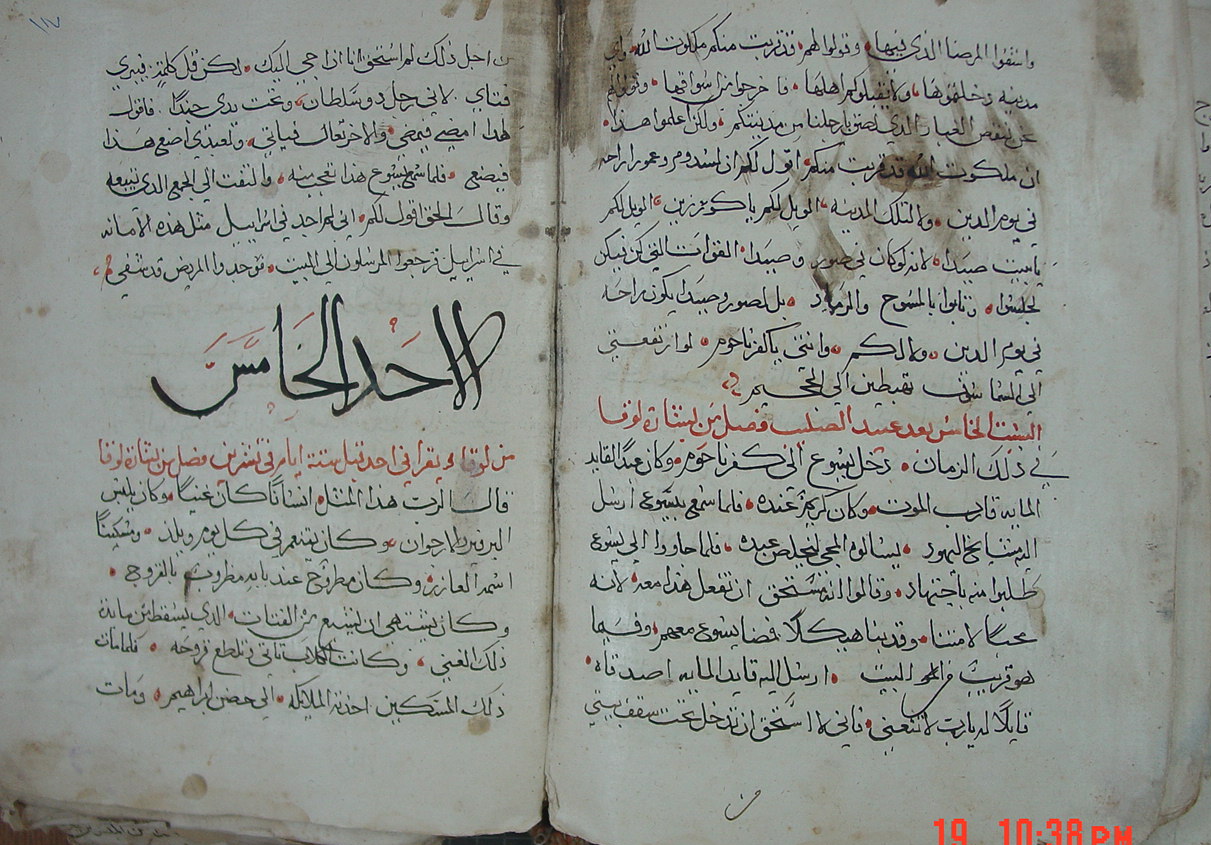 واشفوا المرضا الذي فيها وقولوا لهم قد قربت منكم ملكوت الله واي
مدينه دخلتموها ولا تقبلوكم اهلها فاخرجوا من اسواقها وقولوا لهم
نحن ننفض الغبار الذي لصق بارجلنا من مدينتكم ولكن اعلموا هذا
ان ملكوت الله قد قربت منكم اقول لكم ان لسدوم وعمورا راحه
في يوم الدين ولا لتلك المدينه الويل لكم يا كورزين الويل لكم
يا بيت صيدا لانه لو كان في صور وصيدا القوات التي كن فيكن
لجلسوا وتابوا بالمسوح والرماد بل لصور وصيدا يكون راحه
في يوم الدين ولا لكم وانتي يا كفرناحوم لو ارتفعتي
الي السما سوف تهبطين الي الجحيم
السبت الخامس بعد عيد الصليب فصل من بشارة لوقا
في ذلك الزمان دخل يسوع الى كفرناحوم وكان عبدًا لقايد
المايه قارب الموت وكان كريم عنده فلما سمع بيسوع ارسل
اليه مشايخ اليهود يسالوه المجي ليخلص عبده فلما جاووا الي يسوع
طلبوا منه باجتهاد وقالوا انه مستحق ان تفعل هذا معه لانه
محبًا لامتنا وقد بنا هيكلًا فمضا يسوع معهم وفيما
هو قريب من البيت ارسل اليه قايد المايه اصدقاه
قايلًا له يا رب لا تتعنى فاني لا استحق ان تدخل تحت سقف بيتي
من
١١٧
من اجل ذلك لم استحق انا ان اجي اليك لكن قل كلمة فيبري
فتاي لاني رجل دو سلطان وتحت يدي جندًا فاقول
لهذا امضي فيمضي والاخر تعال فياتي ولعبدي اصنع هذا
فيصنع فلما سمع يسوع هذا تعجب منه والتفت الي الجمع الذي تتبعه
وقال الحق اقول لكم اني لم اجد في اسراييل مثل هذه الامانه
في اسراييل فرجعوا المرسلون الي البيت فوجدوا المريض قد شفي
الاحد الخامس
من لوقا يقرا في احد قبل ستة ايام في تشرين فصل من بشارة لوقا
قال الرب هذا المثل انسانًا كان غنيًا وكان يلبس
البرفير والارجوان وكان يتنعم في كل يوم ويلذ ومسكينًا
اسمه العازر وكان مطروح عند بابه مضروب بالقروح
وكان يشتهي ان يشبع من الفتات الذي يسقط من مايدة
ذلك الغني وكانت الكلاب تاتي وتلطع قروحه فلما مات
ذلك المسكين اخذته الملايكه الي حضن ابراهيم ومات
19 10:38 PM